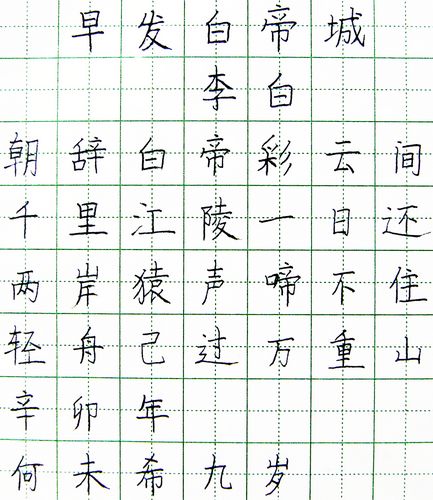 早发白帝城
李白
朝辞白帝彩云间
千里江陵一日还
两岸猿声啼不住
轻舟己过万重山
辛卯年
何未希九岁